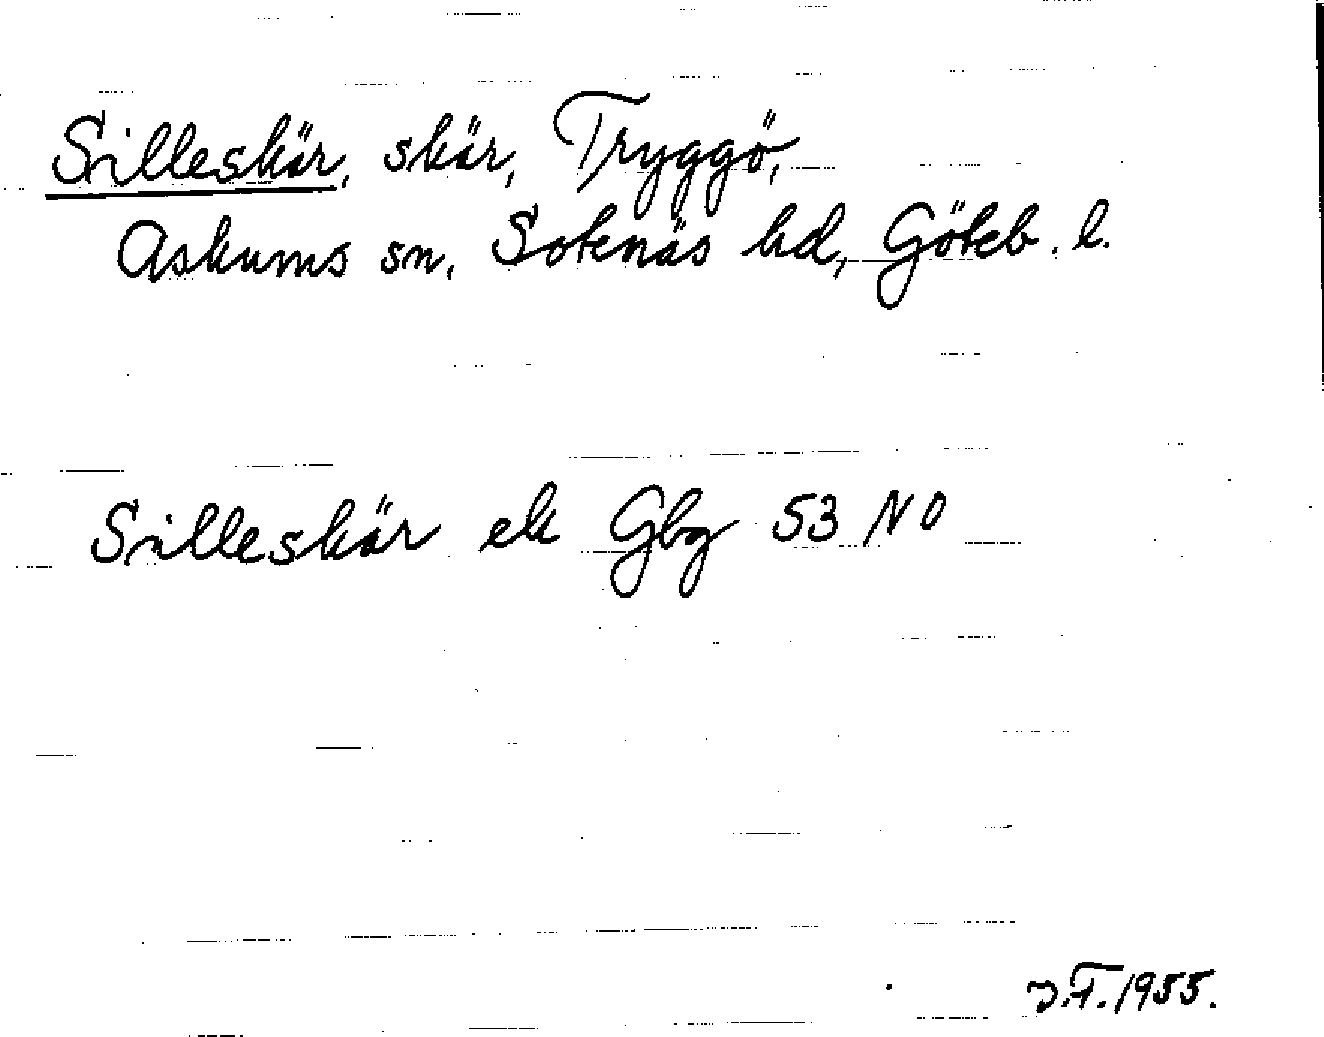 Silleskär, skär, Tryggö,
Askums sn, Sotenäs hd, Göteb. l.
Silleskär ek Gbg 53 NO
1955.